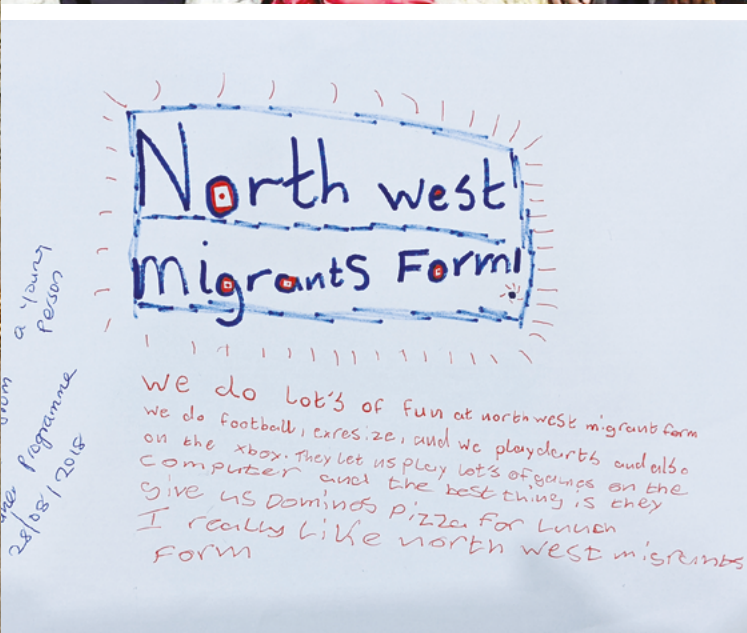 North west
migrants Form!
We do Lot's of fun at northwest migrant form
we do football, exresize, and we playdarts and also
on the xbox. They let us play Lot's of games on the
computer and the best thing is they
give us Dominos pizza for Lunch
I really Like north west migrants
Form
a Young
Person
Programme
28/08/2018